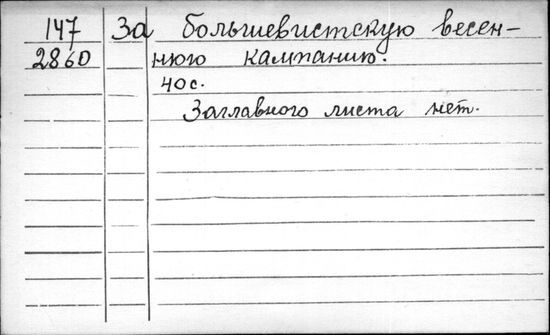 147 За большевистскую весен-
2860 нюю кампанию.
40с.
Заглавного листа нет.